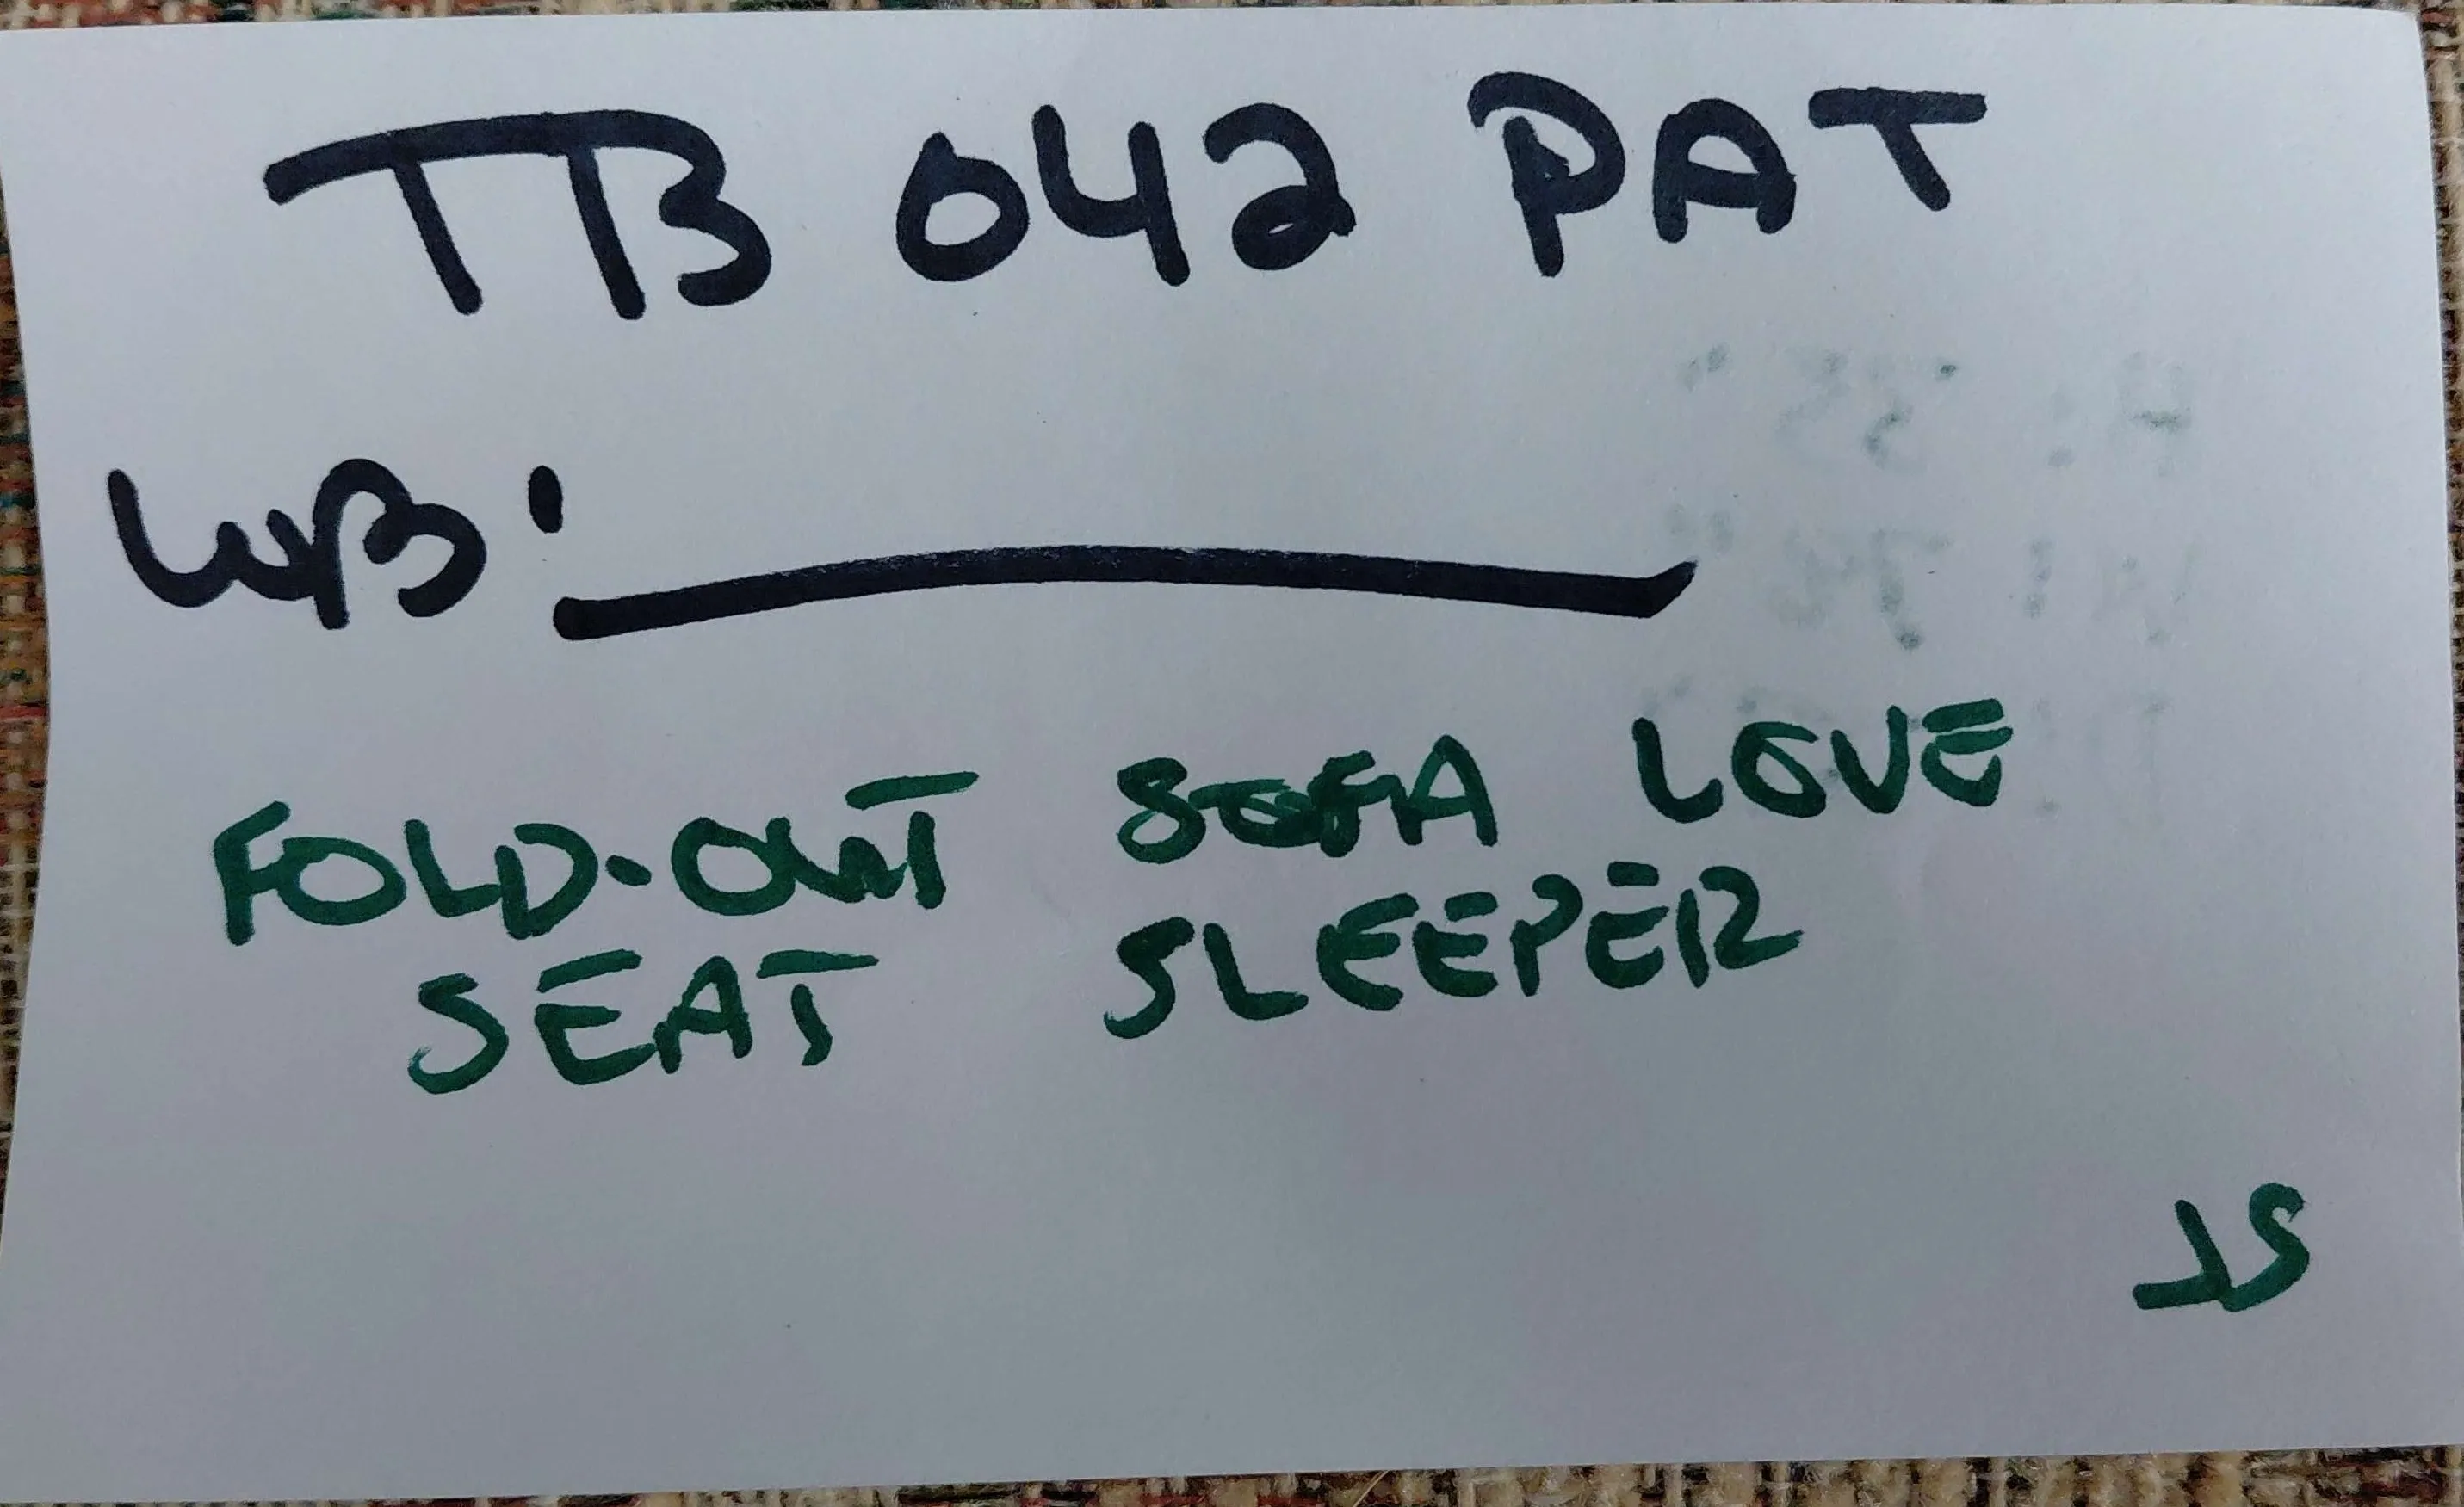 TB 042 PAT
WB:
FOLD-OUT SOFA LOVE
SEAT SLEEPER
JS